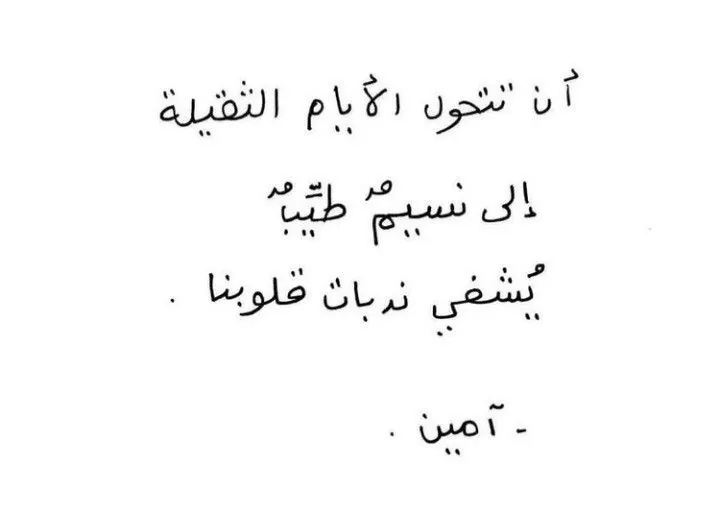 أن تتحول الأيام الثقيلة
إلى نسيمٌ طيّبٌ
يُشفي ندبات قلوبنا .
- آمين .